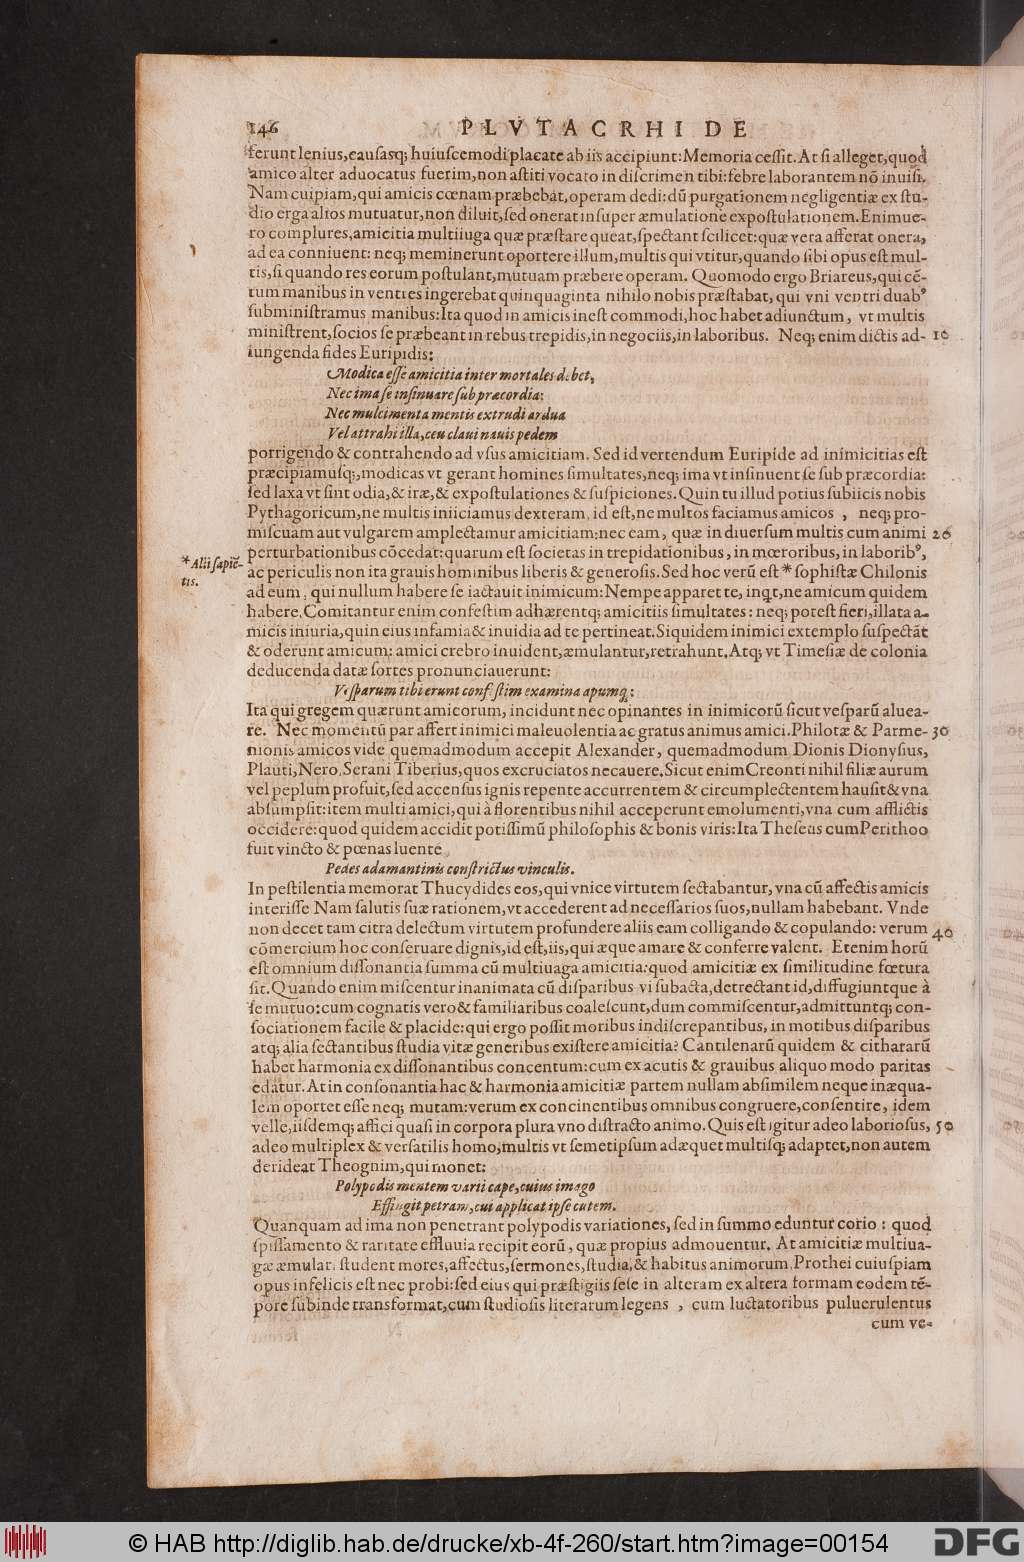 146
PLVTACRHI DE
ferunt lenius, causasq; huiuscemodi placate ab iis accipiunt: Memoria cessit. At si alleget, quod
amico alter aduocatus fuerim, non astiti vocato in discrimen tibi: febre laborantem nō inuisi.
Nam cuipiam, qui amicis cœnam præbebat, operam dedi: dū purgationem negligentiæ ex stu-
dio erga alios mutuatur, non diluit, sed onerat insuper æmulatione expostulationem. Enimue-
ro complures, amicitia multiiuga quæ præstare queat, spectant scilicet: quæ vera afferat onera,
ad ea conniuent: neq; meminerunt oportere illum, multis qui vtitur, quando sibi opus est mul-
tis, si quando res eorum postulant, mutuam præbere operam. Quomodo ergo Briareus, qui cē-
tum manibus in ventres ingerebat quinquaginta nihilo nobis præstabat, qui vni ventri duabꝰ
subministramus manibus: Ita quod in amicis inest commodi, hoc habet adiunctum, vt multis
ministrent, socios se præbeant in rebus trepidis, in negociis, in laboribus. Neq; enim dictis ad- 10
iungenda fides Euripidis:
Modica esse amicitia inter mortales debet,
Nec ima se insinuare sub præcordia:
Nec mulcimenta mentis extrudi ardua
Vel attrahi illa, ceu claui nauis pedem
porrigendo & contrahendo ad vsus amicitiam. Sed id vertendum Euripide ad inimicitias est
præcipiamusq;, modicas vt gerant homines simultates, neq; ima vt insinuent se sub præcordia:
sed laxa vt sint odia, & iræ, & expostulationes & suspiciones. Quin tu illud potius subiicis nobis
Pythagoricum, ne multis iniiciamus dexteram, id est, ne multos faciamus amicos , neq; pro-
miscuam aut vulgarem amplectamur amicitiam: nec eam, quæ in diuersum multis cum animi 20
perturbationibus cōcedat: quarum est societas in trepidationibus, in mœroribus, in laboribꝰ,
*Alii sapiē-
tis.
ac periculis non ita grauis hominibus liberis & generosis. Sed hoc verū est * sophistæ Chilonis
ad eum, qui nullum habere se iactauit inimicum: Nempe apparet te, inqt, ne amicum quidem
habere. Comitantur enim confestim adhærentq; amicitiis simultates: neq; potest fieri, illata a-
micis iniuria, quin eius infamia & inuidia ad te pertineat. Siquidem inimici extemplo suspectāt
& oderunt amicum: amici crebro inuident, æmulantur, retrahunt. Atq; vt Timesiæ de colonia
deducenda datæ sortes pronunciauerunt:
Vesparum tibi erunt confestim examina apumq;:
Ita qui gregem quærunt amicorum, incidunt nec opinantes in inimicorū sicut vesparū aluea-
re. Nec momentū par affert inimici maleuolentia ac gratus animus amici. Philotæ & Parme- 30
nionis amicos vide quemadmodum accepit Alexander, quemadmodum Dionis Dionysius,
Plauti, Nero, Serani Tiberius, quos excruciatos necauere. Sicut enim Creonti nihil filiæ aurum
vel peplum profuit, sed accensus ignis repente accurrentem & circumplectentem hausit & vna
absumpsit: item multi amici, qui à florentibus nihil acceperunt emolumenti, vna cum afflictis
occidere: quod quidem accidit potissimū philosophis & bonis viris: Ita Theseus cum Perithoo
fuit vincto & pœnas luente
Pedes adamantinis constrictus vinculis.
In pestilentia memorat Thucydides eos, qui vnice virtutem sectabantur, vna cū affectis amicis
interisse Nam salutis suæ rationem, vt accederent ad necessarios suos, nullam habebant. Vnde
non decet tam citra delectum virtutem profundere aliis eam colligando & copulando: verum 40
cōmercium hoc conseruare dignis, id est, iis, qui æque amare & conferre valent. Etenim horū
est omnium dissonantia summa cū multiuaga amicitia: quod amicitiæ ex similitudine fœtura
sit. Quando enim miscentur inanimata cū disparibus vi subacta, detrectant id, diffugiuntque à
se mutuo: cum cognatis vero & familiaribus coalescunt, dum commiscentur, admittuntq; con-
sociationem facile & placide: qui ergo possit moribus indiscrepantibus, in motibus disparibus
atq; alia sectantibus studia vitæ generibus existere amicitia? Cantilenarū quidem & cithararū
habet harmonia ex dissonantibus concentum: cum ex acutis & grauibus aliquo modo paritas
edatur. At in consonantia hac & harmonia amicitiæ partem nullam absimilem neque inæqua-
lem oportet esse neq; mutam: verum ex concinentibus omnibus congruere, consentire, idem
velle, iisdemq; affici quasi in corpora plura vno distracto animo. Quis est igitur adeo laboriosus, 50
adeo multiplex & versatilis homo, multis vt semetipsum adæquet multisq; adaptet, non autem
derideat Theognim, qui monet:
Polypodis mentem varii cape, cuius imago
Effingit petram, cui applicat ipse cutem.
Quanquam ad ima non penetrant polypodis variationes, sed in summo eduntur corio: quod
spissamento & raritate effluuia recipit eorū, quæ propius admouentur. At amicitiæ multiua-
gæ æmulari student mores, affectus, sermones, studia, & habitus animorum. Prothei cuiuspiam
opus infelicis est nec probi: sed eius qui præstigiis sese in alteram ex altera formam eodem tē-
pore subinde transformat, cum studiosis literarum legens , cum luctatoribus puluerulentus
cum ve-
© HAB http://diglib.hab.de/drucke/xb-4f-260/start.htm?image=00154
DFG